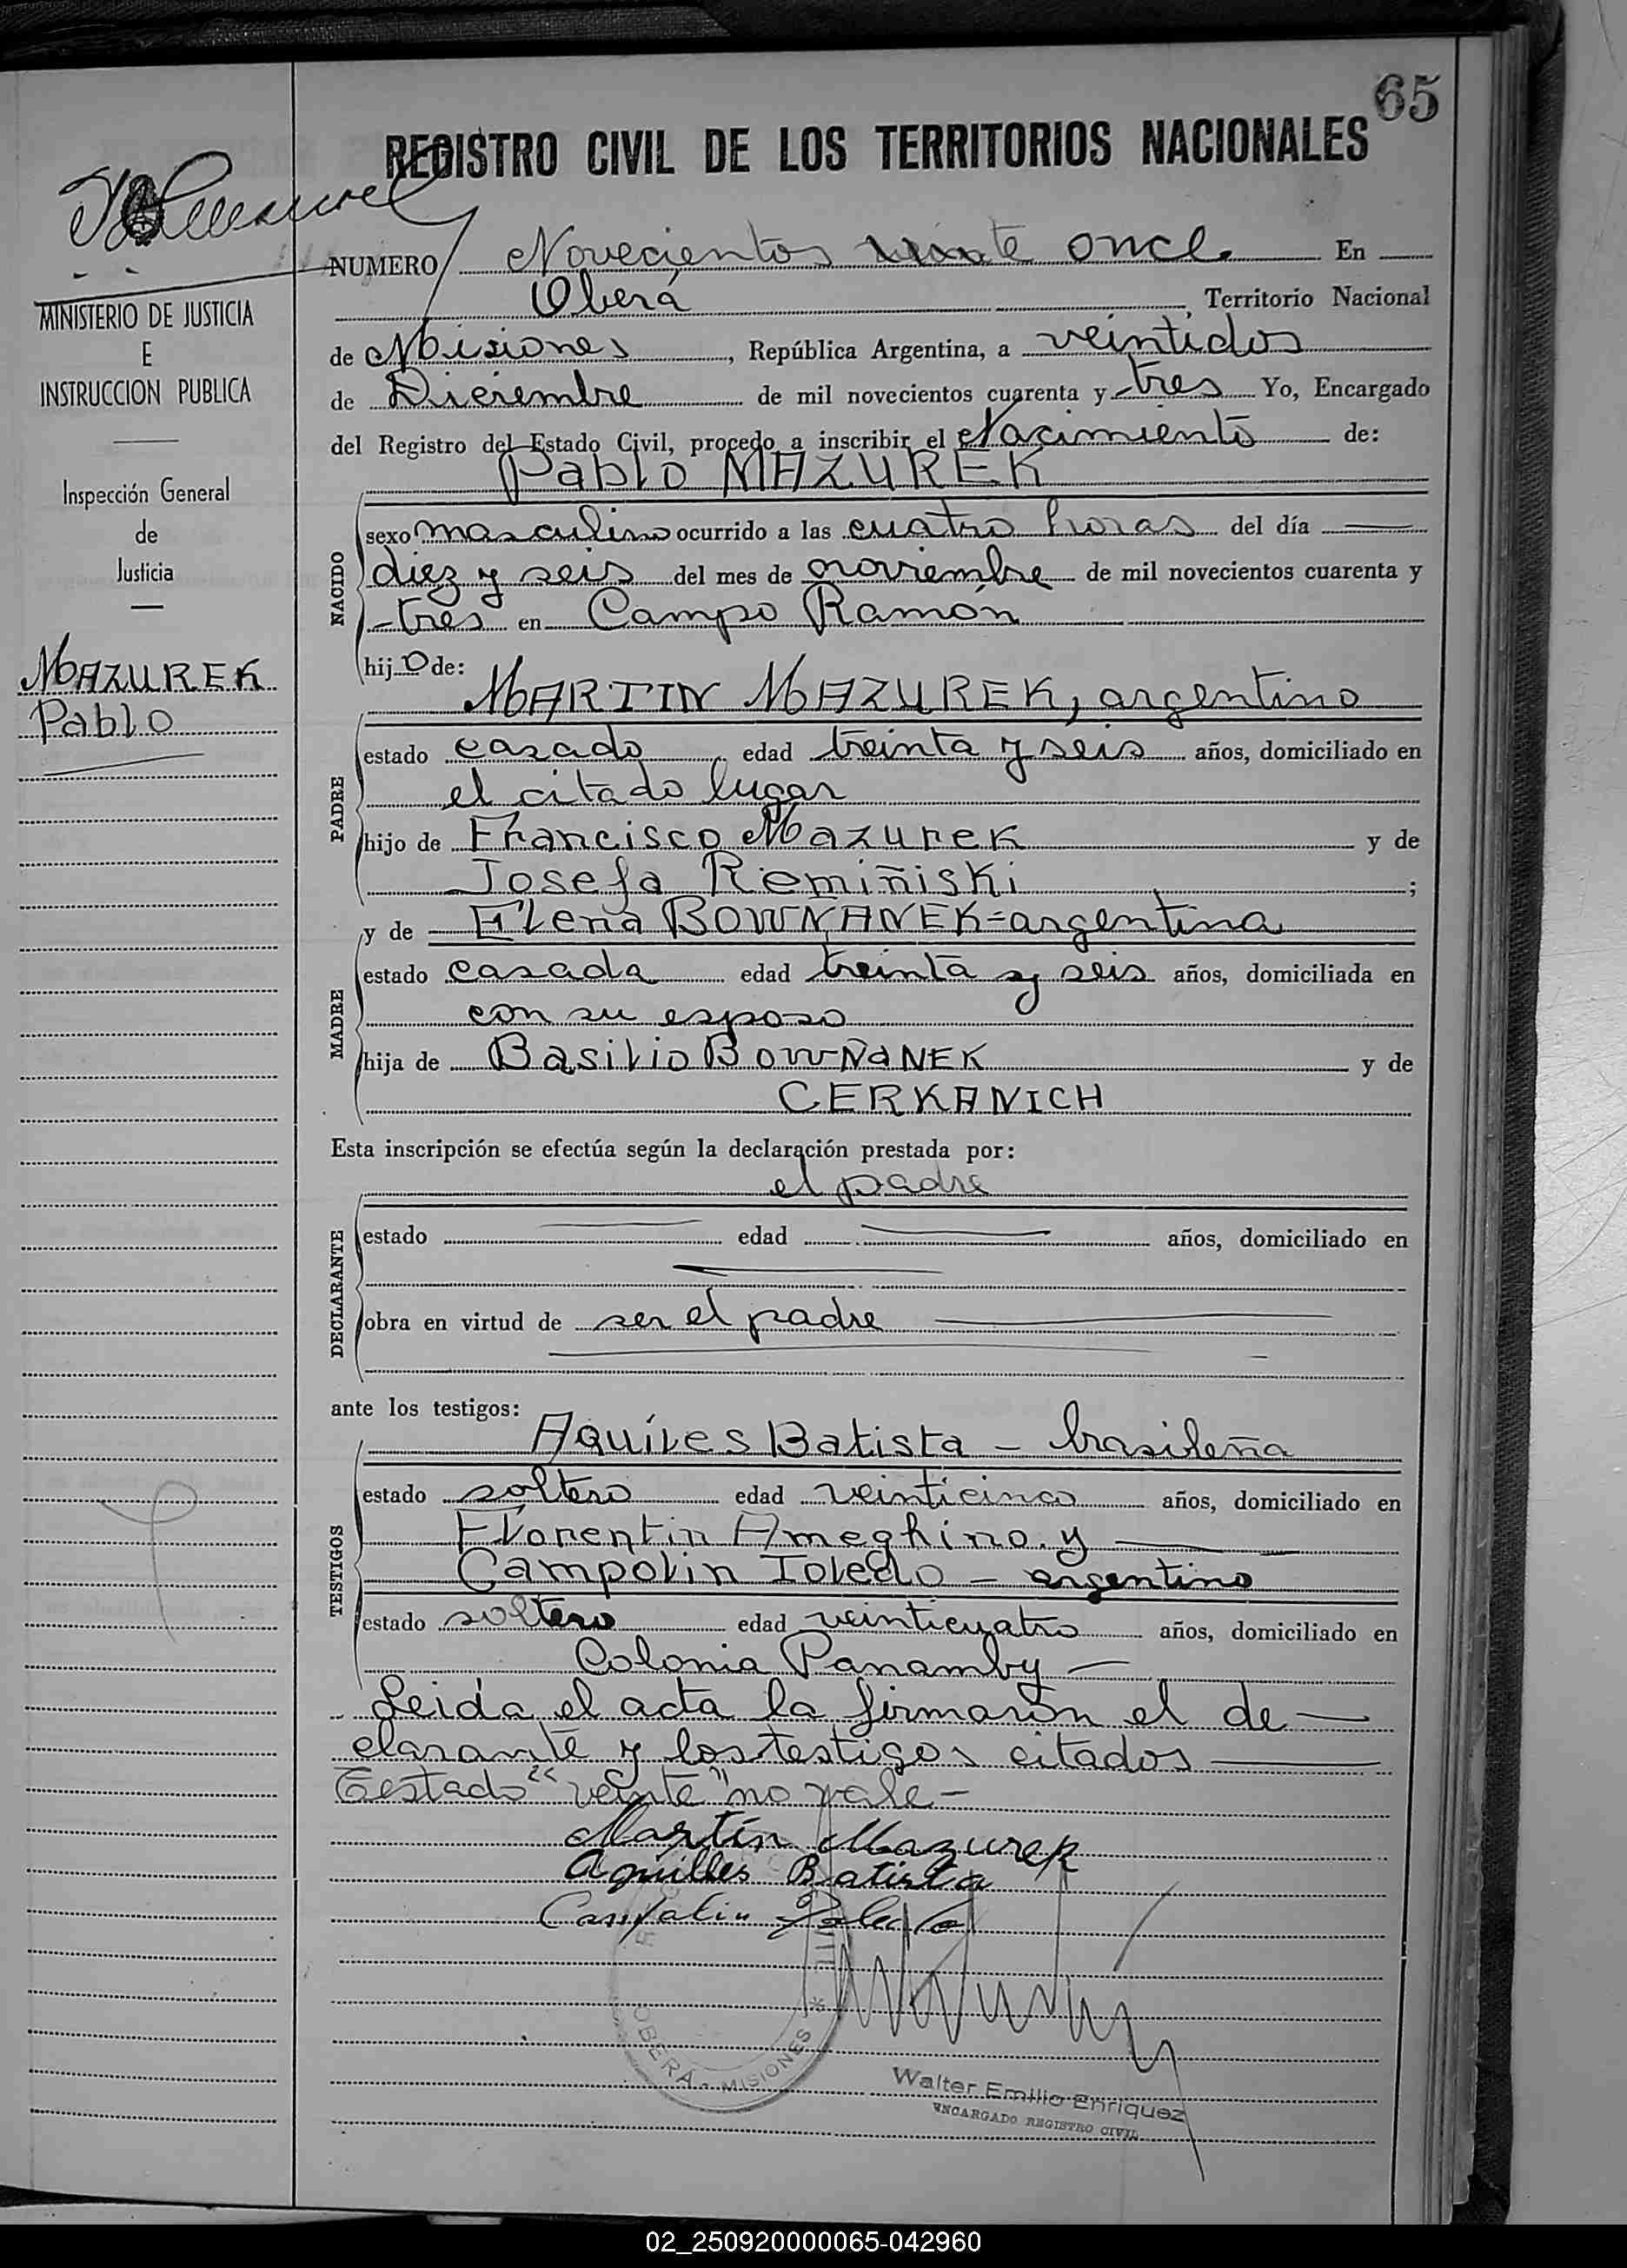 65
REGISTRO CIVIL DE LOS TERRITORIOS NACIONALES
NUMERO Novecientos veinte once. En
Oberá, Territorio Nacional
de Misiones, República Argentina, a veintidos
de Diciembre de mil novecientos cuarenta y tres Yo, Encargado
del Registro del Estado Civil, procedo a inscribir el Nacimiento de:
Pablo MAZUREK
NACIDO
sexo masculino ocurrido a las cuatro horas del día
diez y seis del mes de noviembre de mil novecientos cuarenta y
tres en Campo Ramón
hijo de:
MARTIN MAZUREK, argentino
PADRE
estado casado edad treinta y seis años, domiciliado en
el citado lugar
hijo de Francisco Mazurek y de
Josefa Remiñiski;
y de Elena BOWNANEK=argentina
MADRE
estado casada edad treinta y seis años, domiciliada en
con su esposo
hija de Basilio BOWÑANEK y de
CERKANICH
Esta inscripción se efectúa según la declaración prestada por:
el padre
DECLARANTE
estado edad años, domiciliado en
obra en virtud de ser el padre
ante los testigos:
Aquiles Batista - brasileña
TESTIGOS
estado soltero edad veinticinco años, domiciliado en
Florentin Ameghino. y
Campolin Toledo - argentino
estado soltero edad veinticuatro años, domiciliado en
Colonia Panamby
Leida el acta la firmaron el de
clarante y los testigos citados
Testado "veinte" no vale-
Martín Mazurek
Aquilles Batista
Campolin Toledo
OBERA - MISIONES
Walter Emilio Enriquez
ENCARGADO REGISTRO CIVIL
MINISTERIO DE JUSTICIA
E
INSTRUCCION PUBLICA
Inspección General
de
Justicia
MAZUREK
Pablo
02_250920000065-042960